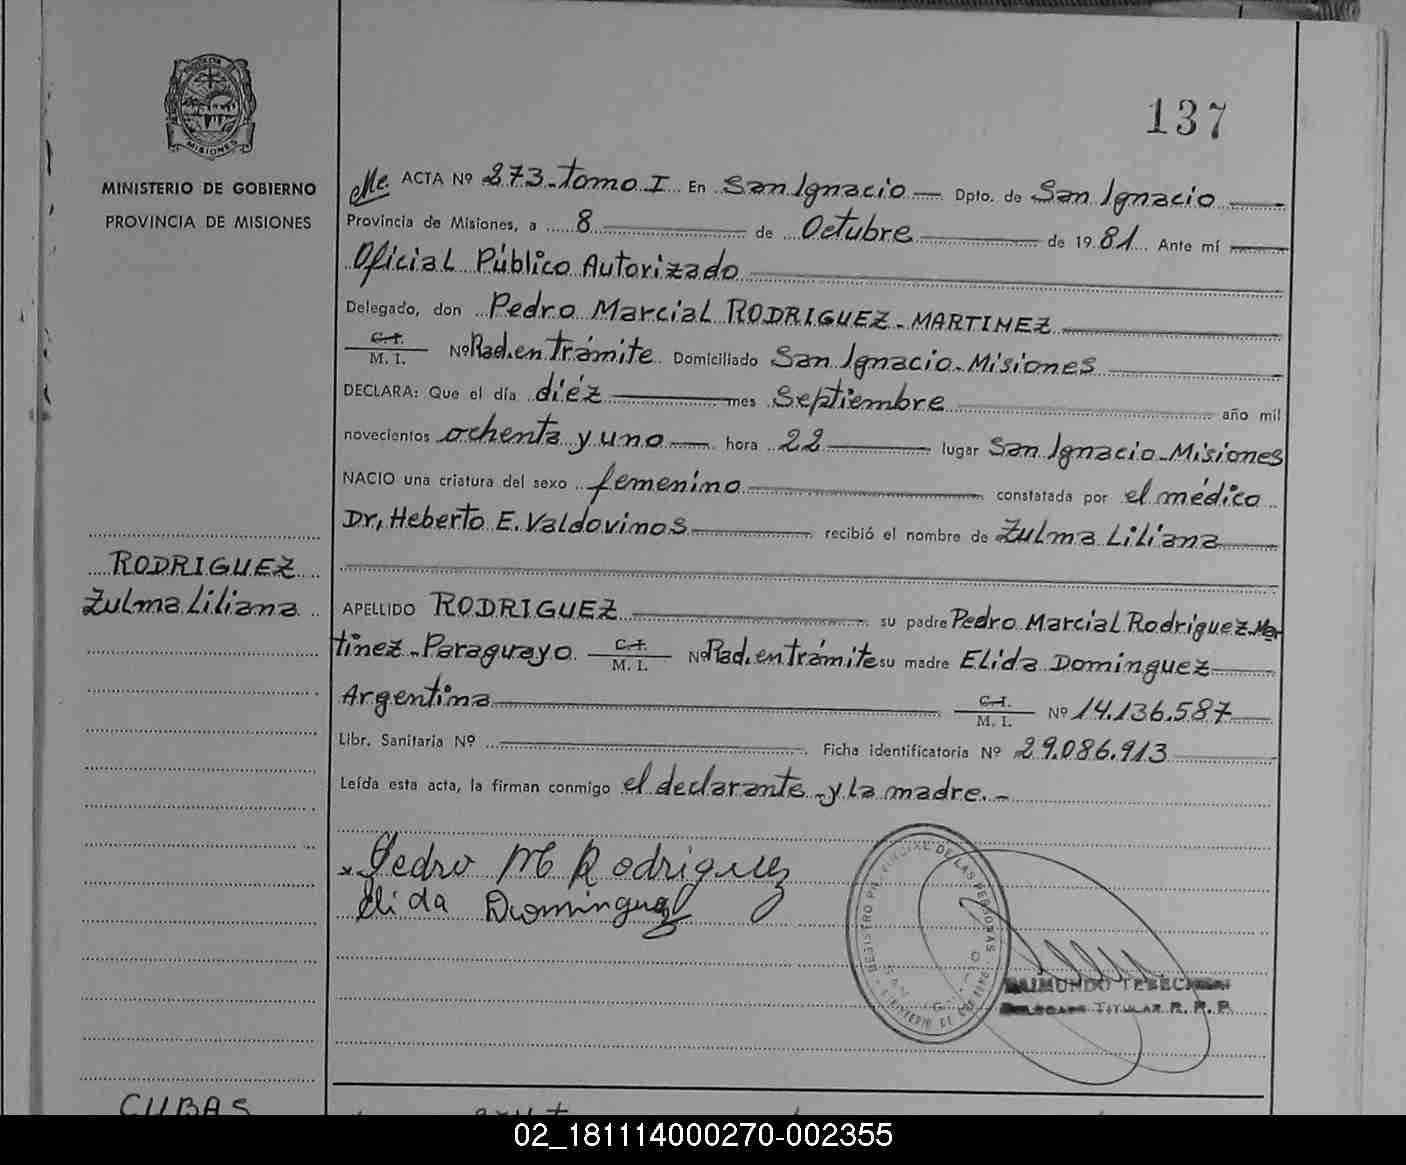 137
MISIONES
MINISTERIO DE GOBIERNO
PROVINCIA DE MISIONES
ACTA Nº 273-Tomo I En San Ignacio Dpto. de San Ignacio
Provincia de Misiones, a 8 de Octubre de 1981 Ante mí
Oficial Público Autorizado
Delegado, don Pedro Marcial RODRIGUEZ-MARTINEZ
C. I.
M. I. Nº Rad. en trámite Domiciliado San Ignacio-Misiones
DECLARA: Que el día diéz mes Septiembre año mil
novecientos ochenta y uno hora 22 lugar San Ignacio-Misiones
NACIO una criatura del sexo femenino constatada por el médico
Dr, Heberto E. Valdovinos recibió el nombre de Zulma Liliana
RODRIGUEZ
Zulma Liliana
APELLIDO RODRIGUEZ su padre Pedro Marcial Rodriguez-Mar
tinez-Paraguayo C. I. M. I. Nº Rad. en trámite su madre Elida Dominguez
Argentina C. I. M. I. Nº 14.136.587
Libr. Sanitaria Nº Ficha identificatoria Nº 29.086.913
Leída esta acta, la firman conmigo el declarante-y la madre.-
Pedro M Rodriguez
Elida Dominguez
REGISTRO PROVINCIAL DE LAS PERSONAS
RAIMUNDO
DELEGADO TITULAR R. P. P.
CUBAS
02_181114000270-002355